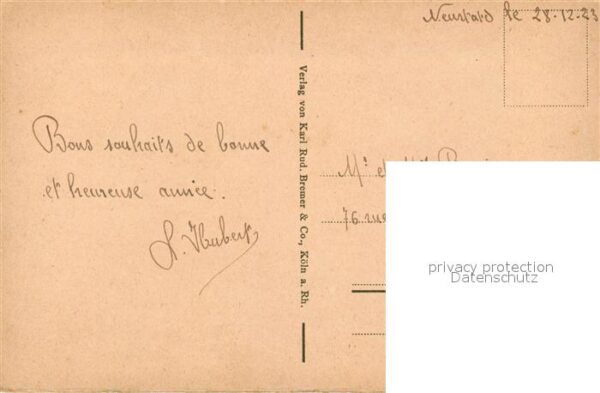 Neustadt le 28-12-23
Bons souhaits de bonne
et heureuse année.
Verlag von Karl Rud. Bremer & Co., Köln a. Rh.
Mr et
76 rue
privacy protection
Datenschutz